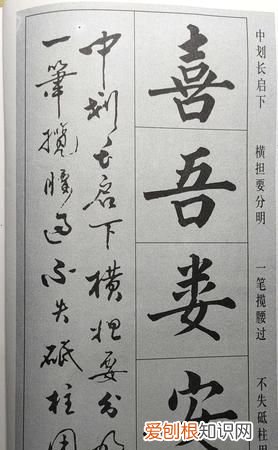 中划长启下
横担要分明
一笔揽腰过
不失砥柱
喜
吾
娄
安
中划长启下横担要分明
一筆攬腰過不失砥柱
爱刨根知识网